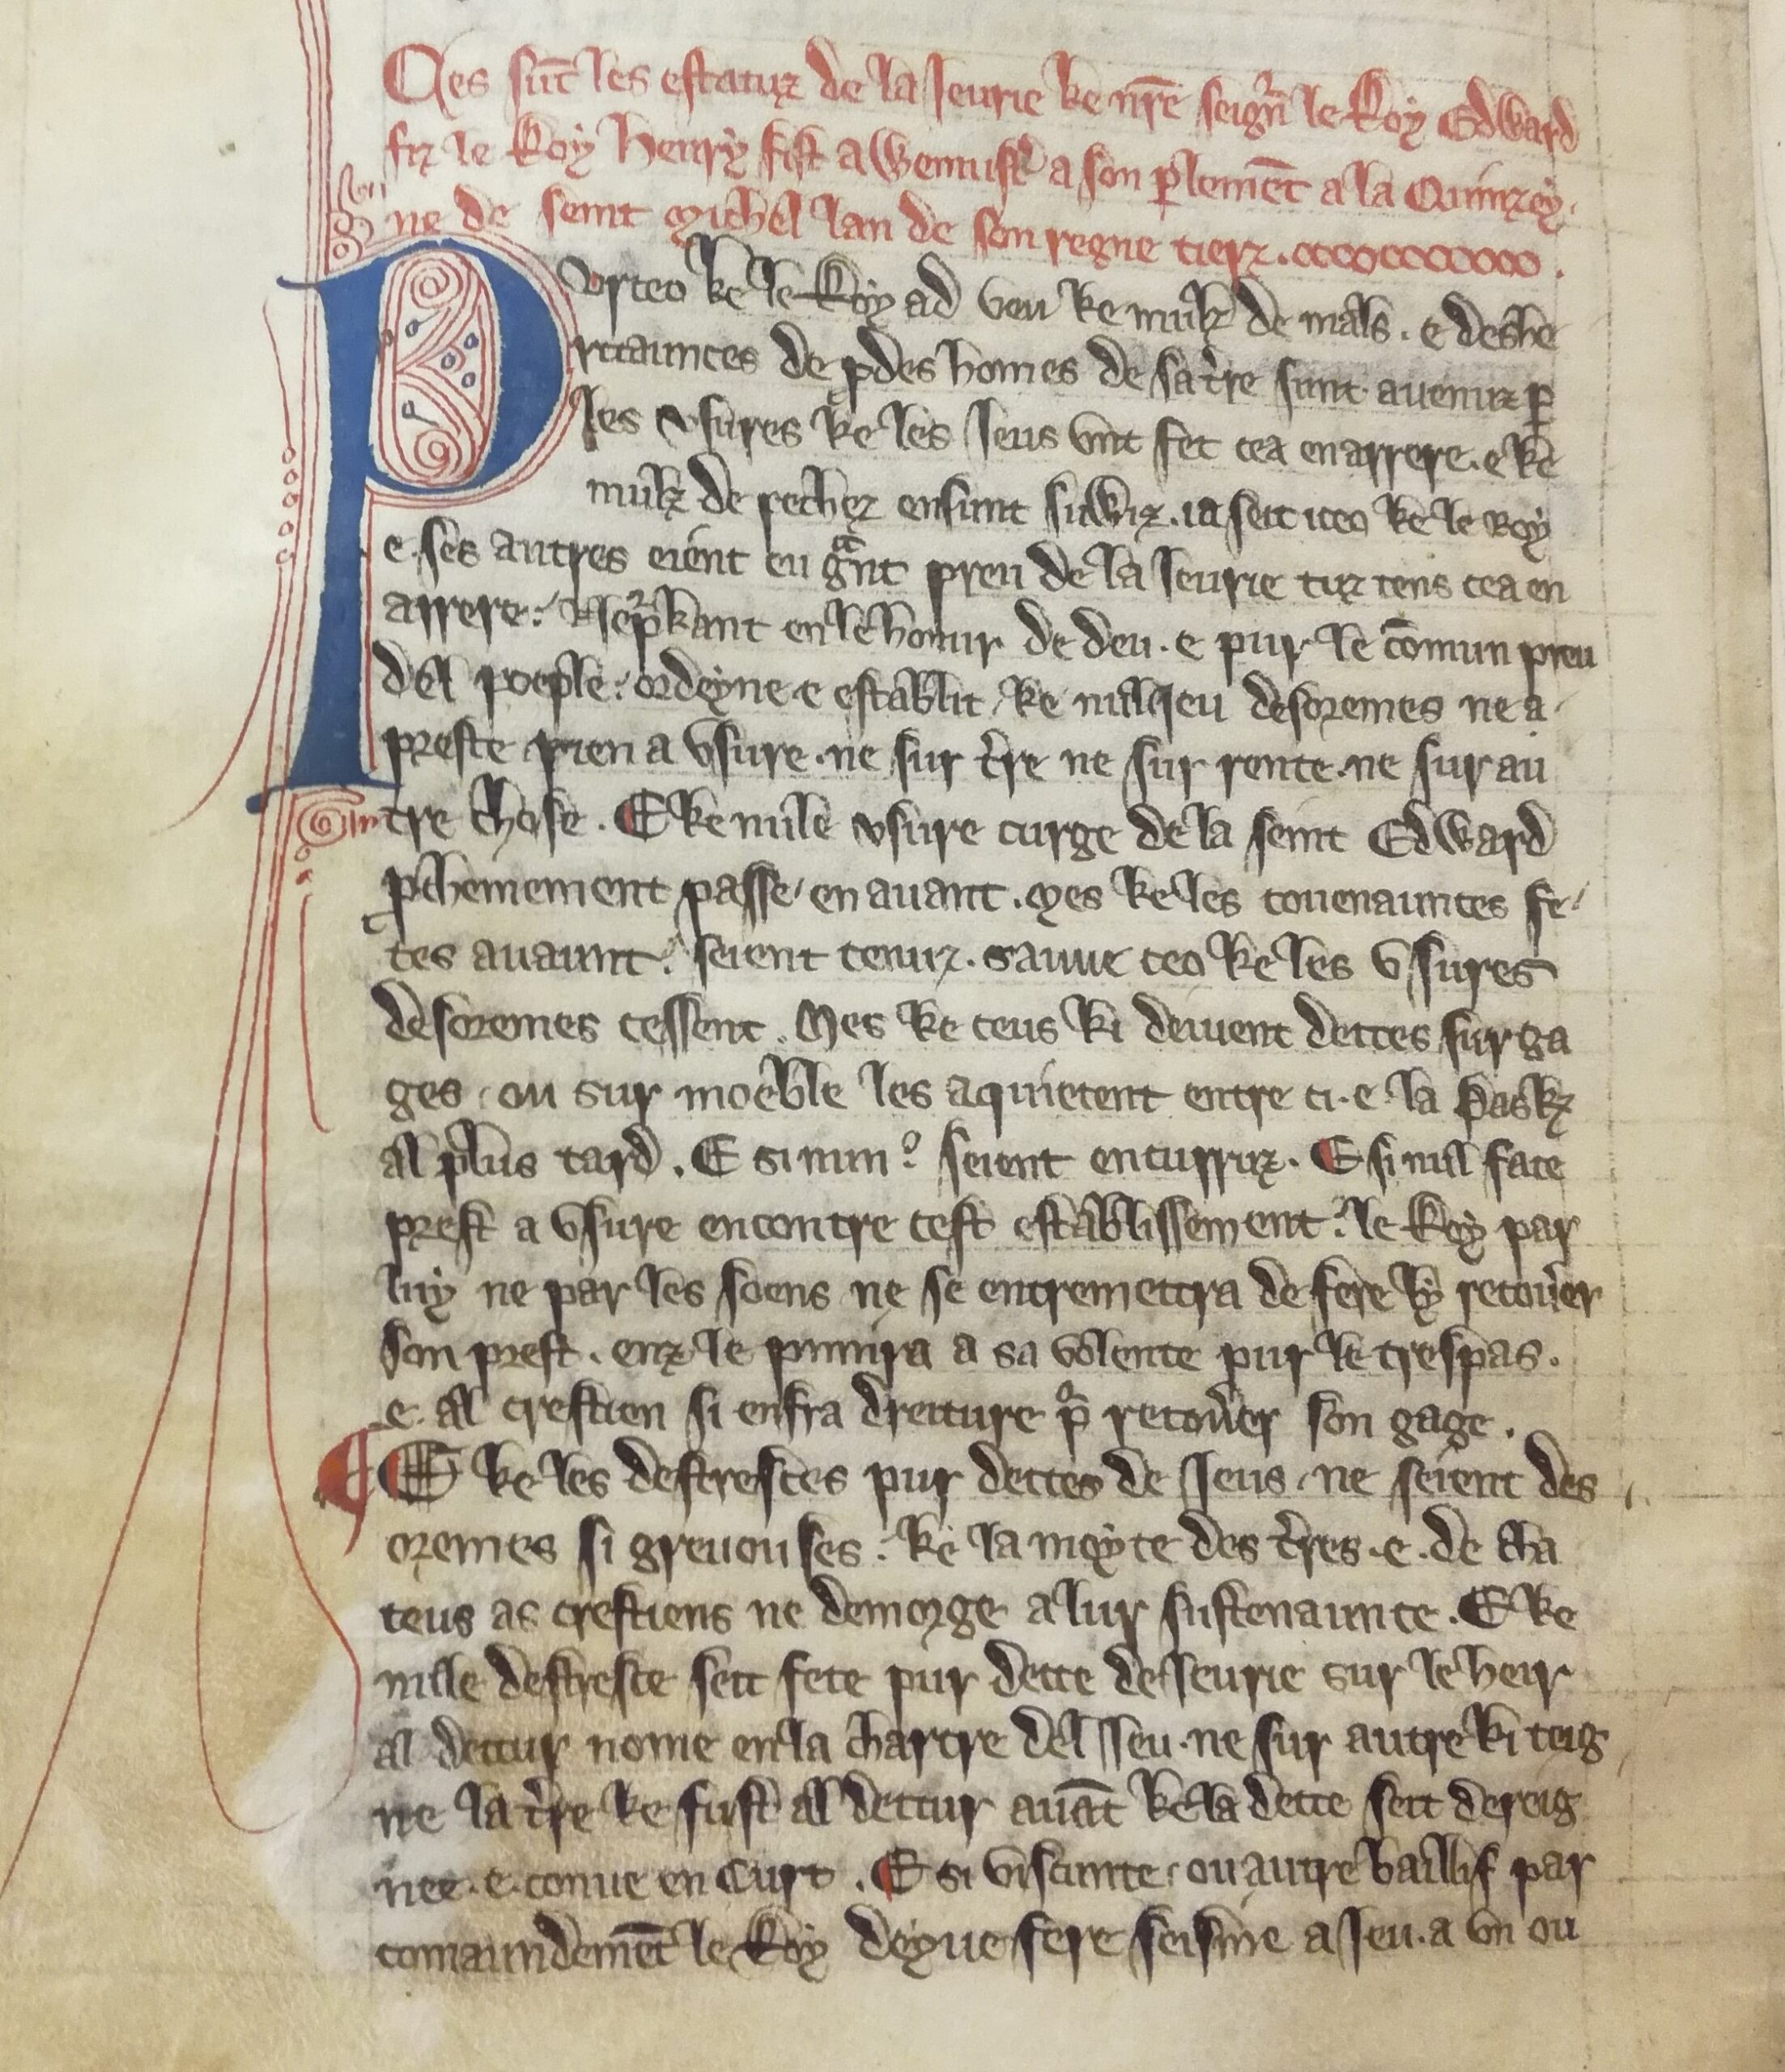 Ces sūt les estatuz de la Jeurie ke nr̄e seignr le Roy Edward
fiz le Roy Henry fist a Wemust' a son plemēt a la Quinzey
ne de seint Michel lan de son regne tierz.
Purceo ke le Roy ad veu ke mulz de mals . e deshe
ritaunces de pdes homes de sa t're sunt auenuz p
les vsures ke les Jeus vnt fet cea enarrere . e ke
mulz de pechez ensunt siwiz . ia seit iceo ke le Roy
e ses autres eient eu gᵃnt preu de la Jeurie tuz tens cea en
arrere . en le honur de deu . e pur le cōmun preu
del poeple : ordeyne e establit . ke nul Jeu desoremes ne a
preste rien a vsure . ne sur t're ne sur rente . ne sur au
tre chose . E ke nule vsure curge de la seint Edward
pchemement passe en auant . Mes ke les couenauntes fe
tes auaunt : seient tenuz . sauue ceo ke les vsures
desoremes cessent . Mes ke ceus ki deiuent dettes sur ga
ges . ou sur moeble les aquietent entre ci . e la Paskz
al plus tard . E si nun : seient encurruz . E si nul face
prest a vsure encontre cest establissement : le Roy par
luy ne par les soens ne se entremettra de fere ly recou'er
son prest . enz le punira a sa volente pur le trespas .
e al crestien si enfra dreiture pr recou'er son gage .
E ke les destresces pur dettes de Jeus . ne seient des
oremes si greuouses : ke la moyte des t'res . e . de cha
teus as crestiens ne demorge a lur sustenaunce . E ke
nule destresce seit fete pur dette de Jeurie sur le heir
al dettur nome en la chartre del Jeu . ne sur autre ki teig
ne la t're ke fust al dettur auāt ke la dette seit dereig
nee . e . conue en Curt . E si viscunte . ou autre baillif par
comaundemēt le Roy deyue fere seisine a Jeu . a vn ou